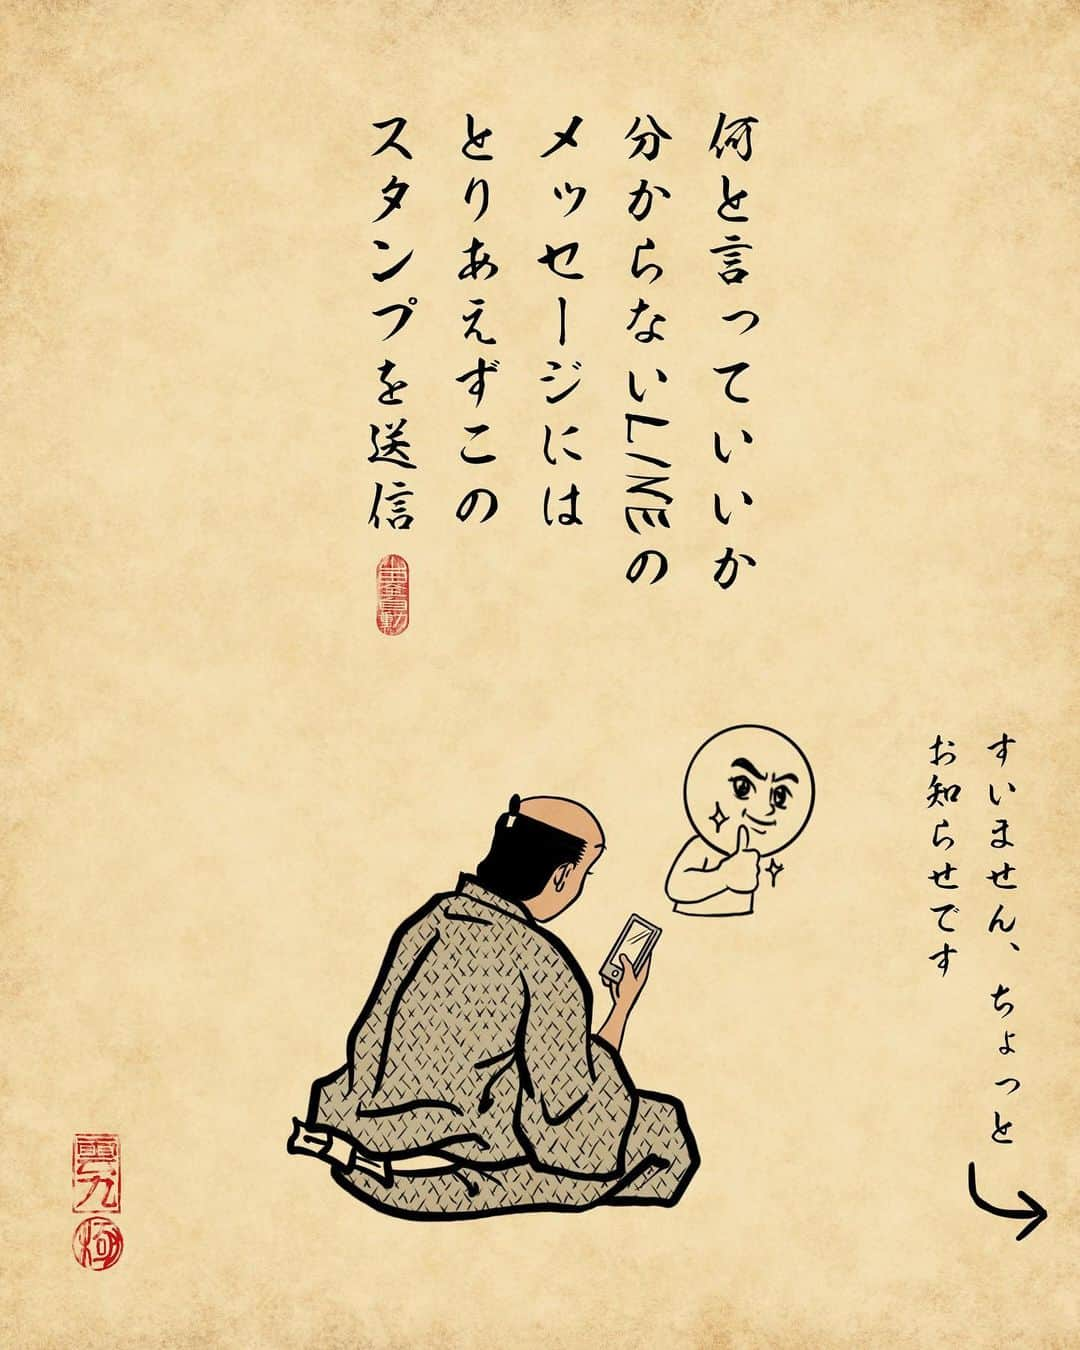 何と言っていいか
分からないLINEの
メッセージには
とりあえずこの
スタンプを送信
すいません、ちょっと
お知らせです